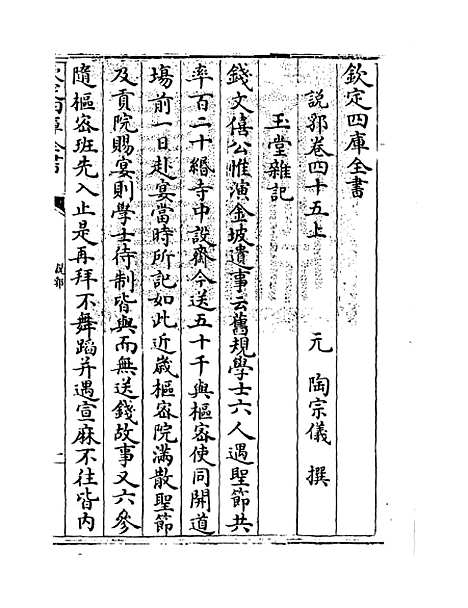 欽定四庫全書
說郛卷四十五上
元 陶宗儀 撰
玉堂雜記
錢文僖公惟演金坡遺事云舊規學士六人遇聖節共
率百二十緡寺中設齋今送五十千與樞密使同開道
場前一日赴宴當時所記如此近歲樞密院滿散聖節
及貢院賜宴則學士待制皆與而無送錢故事又六參
隨樞密班先入止是再拜不舞蹈并遇宣麻不往皆内
說郛